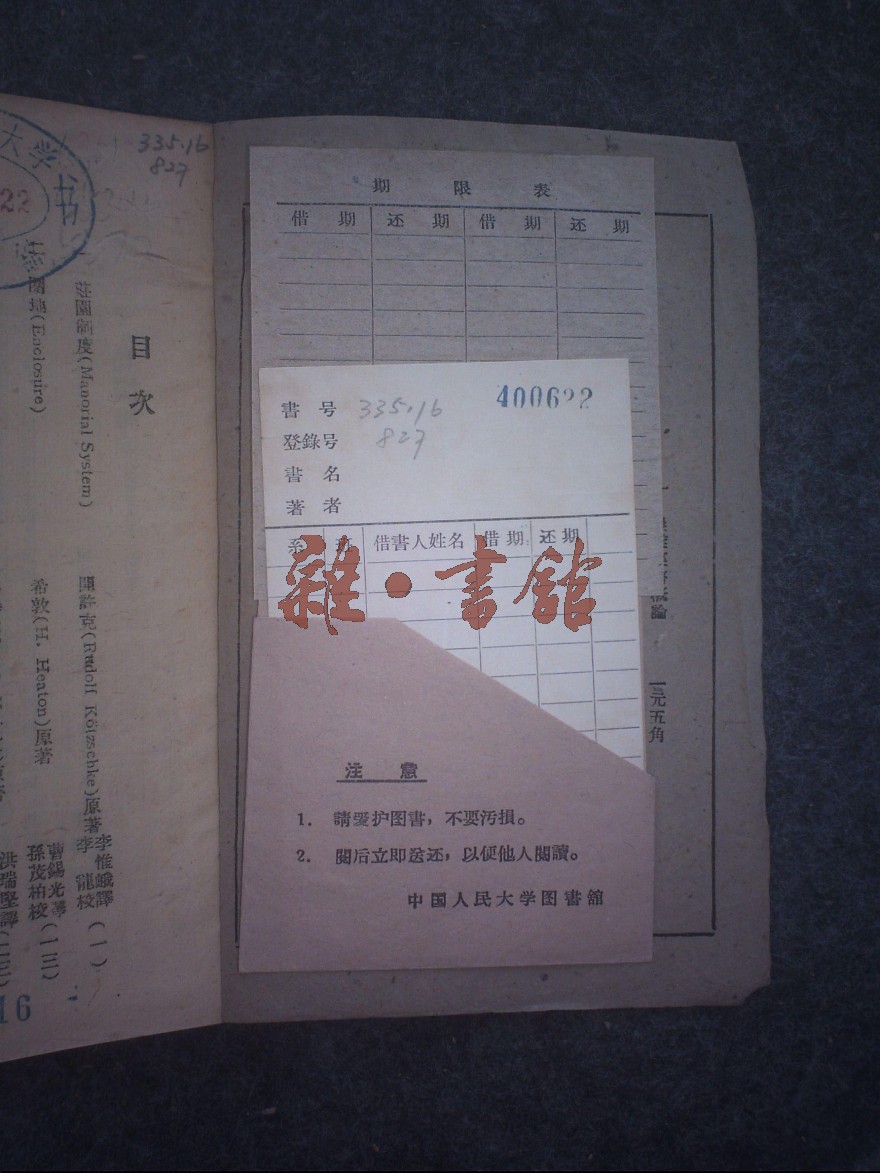 335.16
827
大学
书
22
目次
莊園制度(Manorial System)
開許克(Rudolf Kötzschke)原著
李惟峨譯
李龍校
(一)
圈地(Enclosure)
希敦(H. Heaton)原著
曹錫光譯
孫茂柏校
(一三)
洪瑞堅譯(二三)
16
期限表
借期 还期 借期 还期
書号 335.16 400622
登錄号 827
書名
著者
系 借書人姓名 借期 还期
雜·書館
注意
1. 請愛护图書，不要污損。
2. 閱后立即送还，以便他人閱讀。
中国人民大学图書館
一元五角